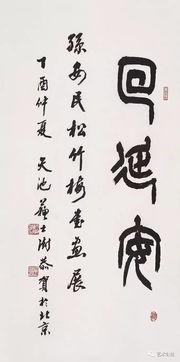 回延安
孫安民松竹梅書画展
丁酉仲夏 天池蘇士澍恭賀於北京